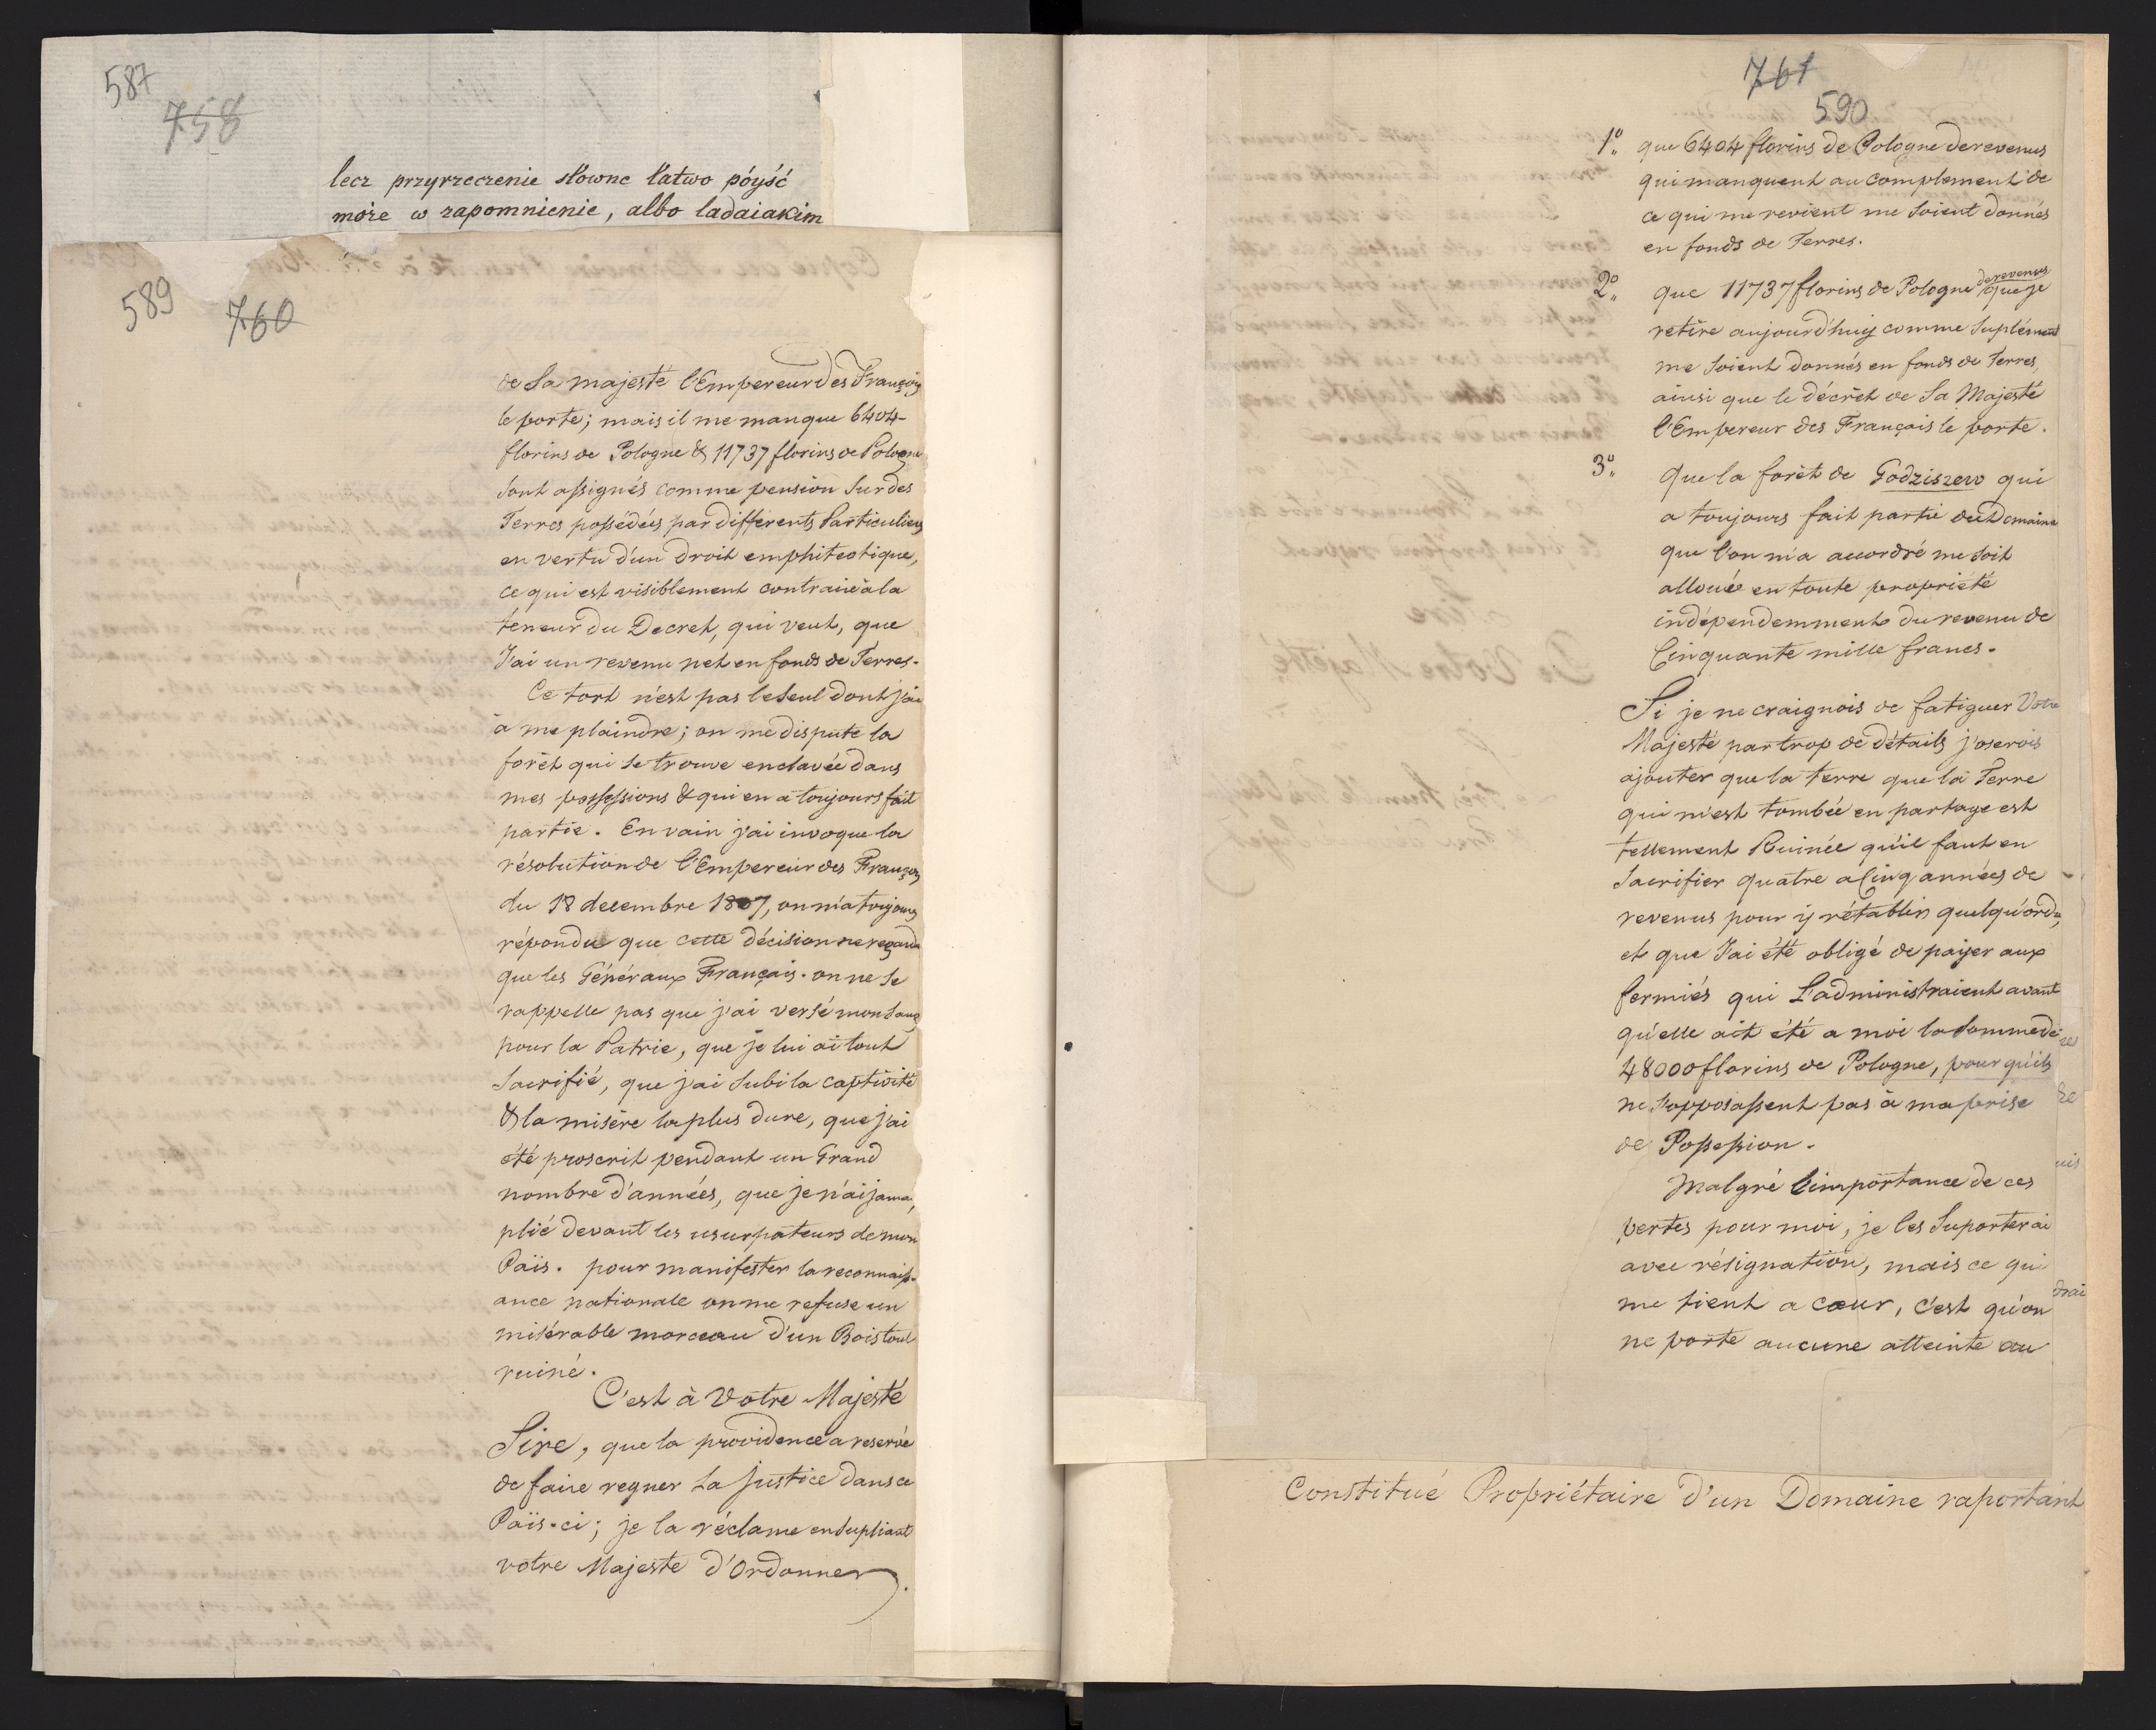 587
758
lecz przyrzeczenie słowne łatwo póyść
może w zapomnienie, albo ladaiakim
589
760
de Sa majesté l'Empereur des Français
le porte; mais il me manque 6404-
florins de Pologne & 11737 florins de Pologne
sont assignés comme pension sur des
Terres possédées par différents Particuliers
en vertu d'un droit emphiteotique,
ce qui est visiblement contraire à la
téneur du Decret, qui veut, que
J'ai un revenu net en fonds de Terres.
Ce tort n'est pas le seul dont j'ai
à me plaindre; on me dispute la
forêt qui se trouve enclavée dans
mes possessions & qui en a toujours fait
partie. En vain j'ai invoque la
résolution de l'Empereur des Français
du 18 decembre 1807, on m'a toujours
répondu que cette décision ne regarde
que les Généraux Français. on ne se
rappelle pas que j'ai versé mon Sang
pour la Patrie, que je lui ai tout
Sacrifié, que j'ai Subi la captivité
& la misère la plus dure, que j'ai
été proscrit pendant un Grand
nombre d'années, que je n'ai jamai,
plié devant les usurpateurs de mon
Païs. pour manifester la reconnaiss-
ance nationale on me refuse un
misérable morceau d'un Bois tout
ruiné.
C'est à Votre Majesté
Sire, que la providence a reservé
de faire regner la Justice dans ce
Païs-ci; je la réclame en Supliant
votre Majeste d'Ordonner.
761
590
1º que 6404 florins de Pologne de revenus
qui manquent au complement de
ce qui me revient me Soient donnés
en fonds de Terres.
2º que 11737 florins de Pologne de revenus que je
retire aujourd'huy comme Suplément
me Soient donnés en fonds de Terres,
ainsi que le décrêt de Sa Majesté
l'Empereur des Français le porte.
3º Que la forêt de Godziszew qui
a toujours fait partie du Domaine
que l'on m'a accordré me Soit
allouée en toute proprieté
indépendemment du revenu de
Cinquante mille francs.
Si je ne craignois de fatiguer Votre
Majesté par trop de détails j'oserois
ajouter que la terre que la Terre
qui m'est tombée en partage est
tellement Ruinée qu'il faut en
Sacrifier quatre a Cinq années de
revenus pour y rétablir quelqu'ordre,
et que J'ai été obligé de payer aux
fermiés qui L'administraient avant
qu'elle ait été a moi la Somme de
48000 florins de Pologne, pour qu'ils
ne s'opposassent pas à ma prise
de Possession.
Malgré l'importance de ces
pertes pour moi, je les Suporterai
avec résignation, mais ce qui
me tient a cœur, c'est qu'on
ne porte aucune atteinte au
Constitué Propriétaire d'un Domaine raportant